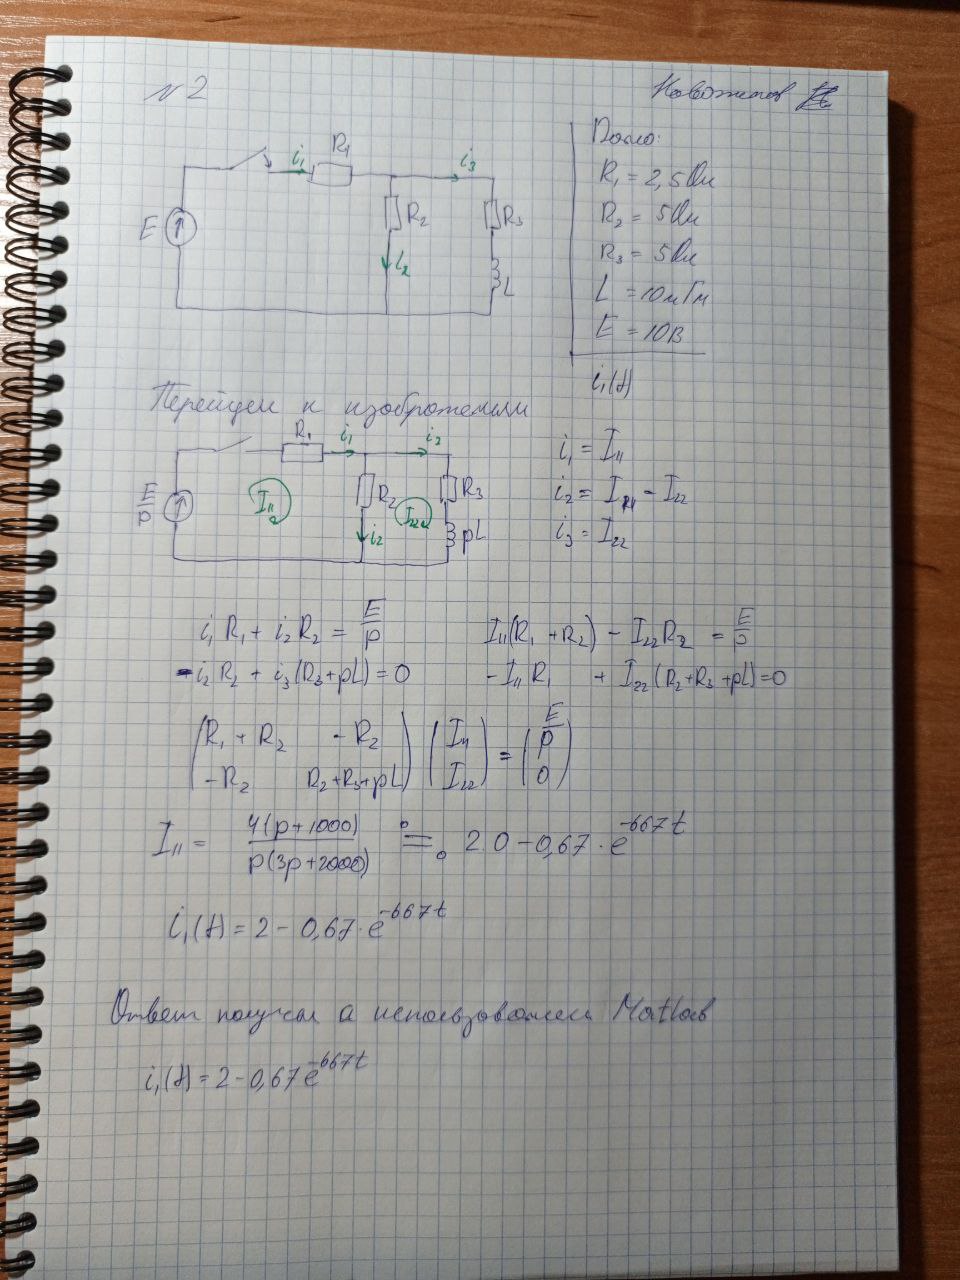 N2
Новожилов
E
i₁
R₁
i₃
R₂
i₂
R₃
L
Дано:
R₁ = 2,5 Ом
R₂ = 5 Ом
R₃ = 5 Ом
L = 10 мГн
E = 10 В
i₁(t)
Перейдем к изображениям
E/p
R₁
i₁
i₂
I₁₁
R₂
i₂
I₂₂
R₃
pL
i₁ = I₁₁
i₂ = I₁₁ - I₂₂
i₃ = I₂₂
i₁R₁ + i₂R₂ = E/p
I₁₁(R₁ + R₂) - I₂₂R₂ = E/p
-i₂R₂ + i₃(R₃+pL) = 0
-I₁₁R₁ + I₂₂(R₂+R₃+pL) = 0
(R₁ + R₂ -R₂) (I₁₁) = (E/p)
(-R₂ R₂+R₃+pL) (I₂₂) (0)
I₁₁ = 4(p+1000)/p(3p+2000) ≓ 2.0 - 0,67 · e^-667t
i₁(t) = 2 - 0,67 · e^-667t
Ответ получен с использованием Matlab
i₁(t) = 2 - 0,67 e^-667t